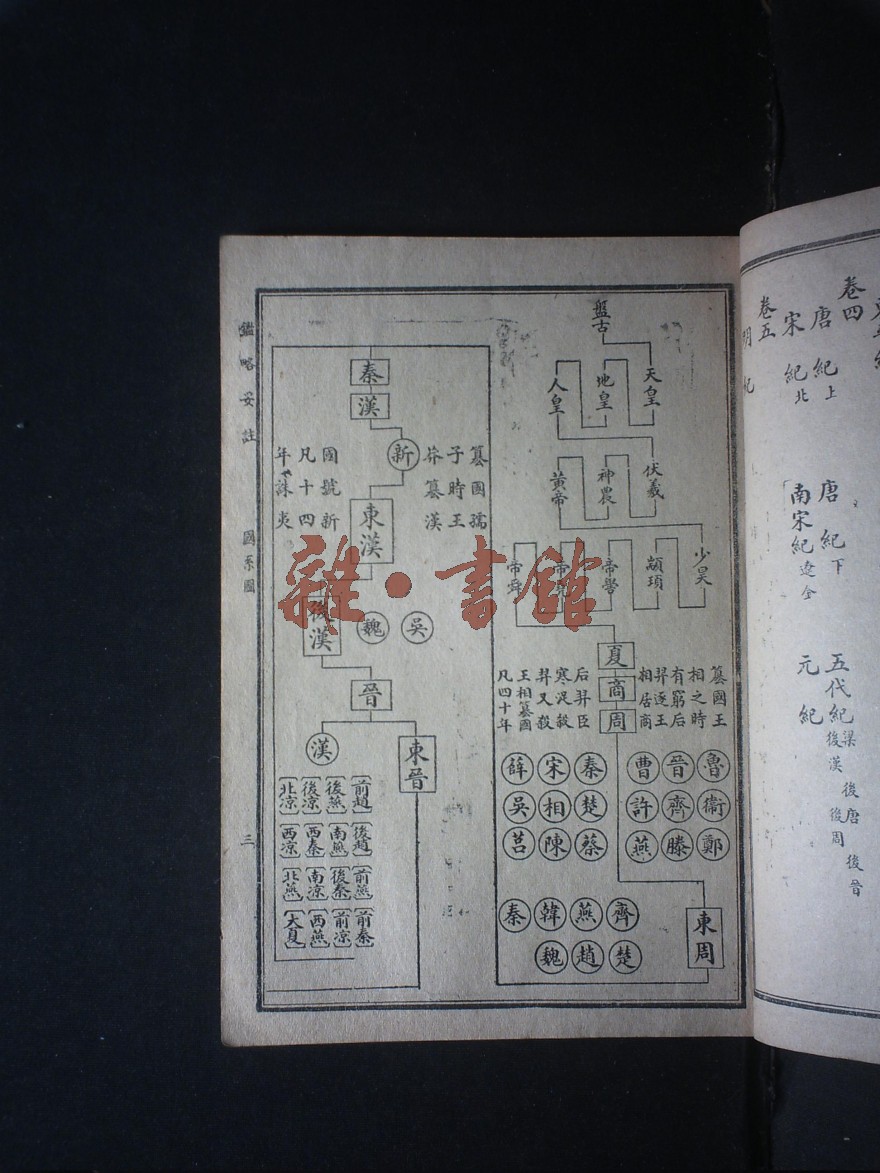 卷四
唐紀上
唐紀下
五代紀梁 後唐 後晉
後漢 後周
宋紀北
南宋紀遼金
元紀
卷五
明紀
盤古
天皇
地皇
人皇
伏羲
神農
黃帝
少昊
顓頊
帝嚳
帝堯
帝舜
夏
商
周
篡國王
相之時
有窮后
羿逐王
相居商
后羿臣
寒浞殺
羿又殺
王相篡國
凡四十年
魯 晉 曹
衞 齊 許
鄭 滕 燕
秦 宋 薛
楚 相 吳
蔡 陳 莒
東周
齊 燕 韓 秦
楚 趙 魏
秦
漢
新
篡國孺
子時王
莽篡漢
國號新
凡十四
年誅夷
東漢
後漢
魏
吳
晉
東晉
漢
前趙 後燕 後涼 北涼
後趙 南燕 西秦 西涼
前燕 後秦 南涼 北燕
前秦 前涼 西燕 大夏
鑑略妥註
國系圖
三
雜·書館